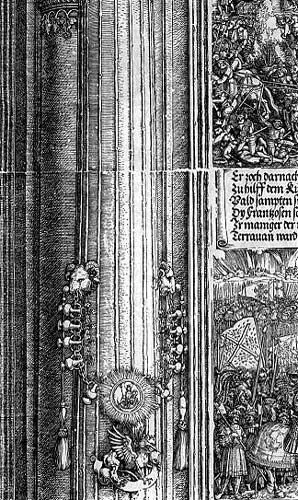 Er zoch darnach
Zu hilff dem Ki
Bald sampten s
Dy Frantzosen s
Ir maniger der
Terrauan ward